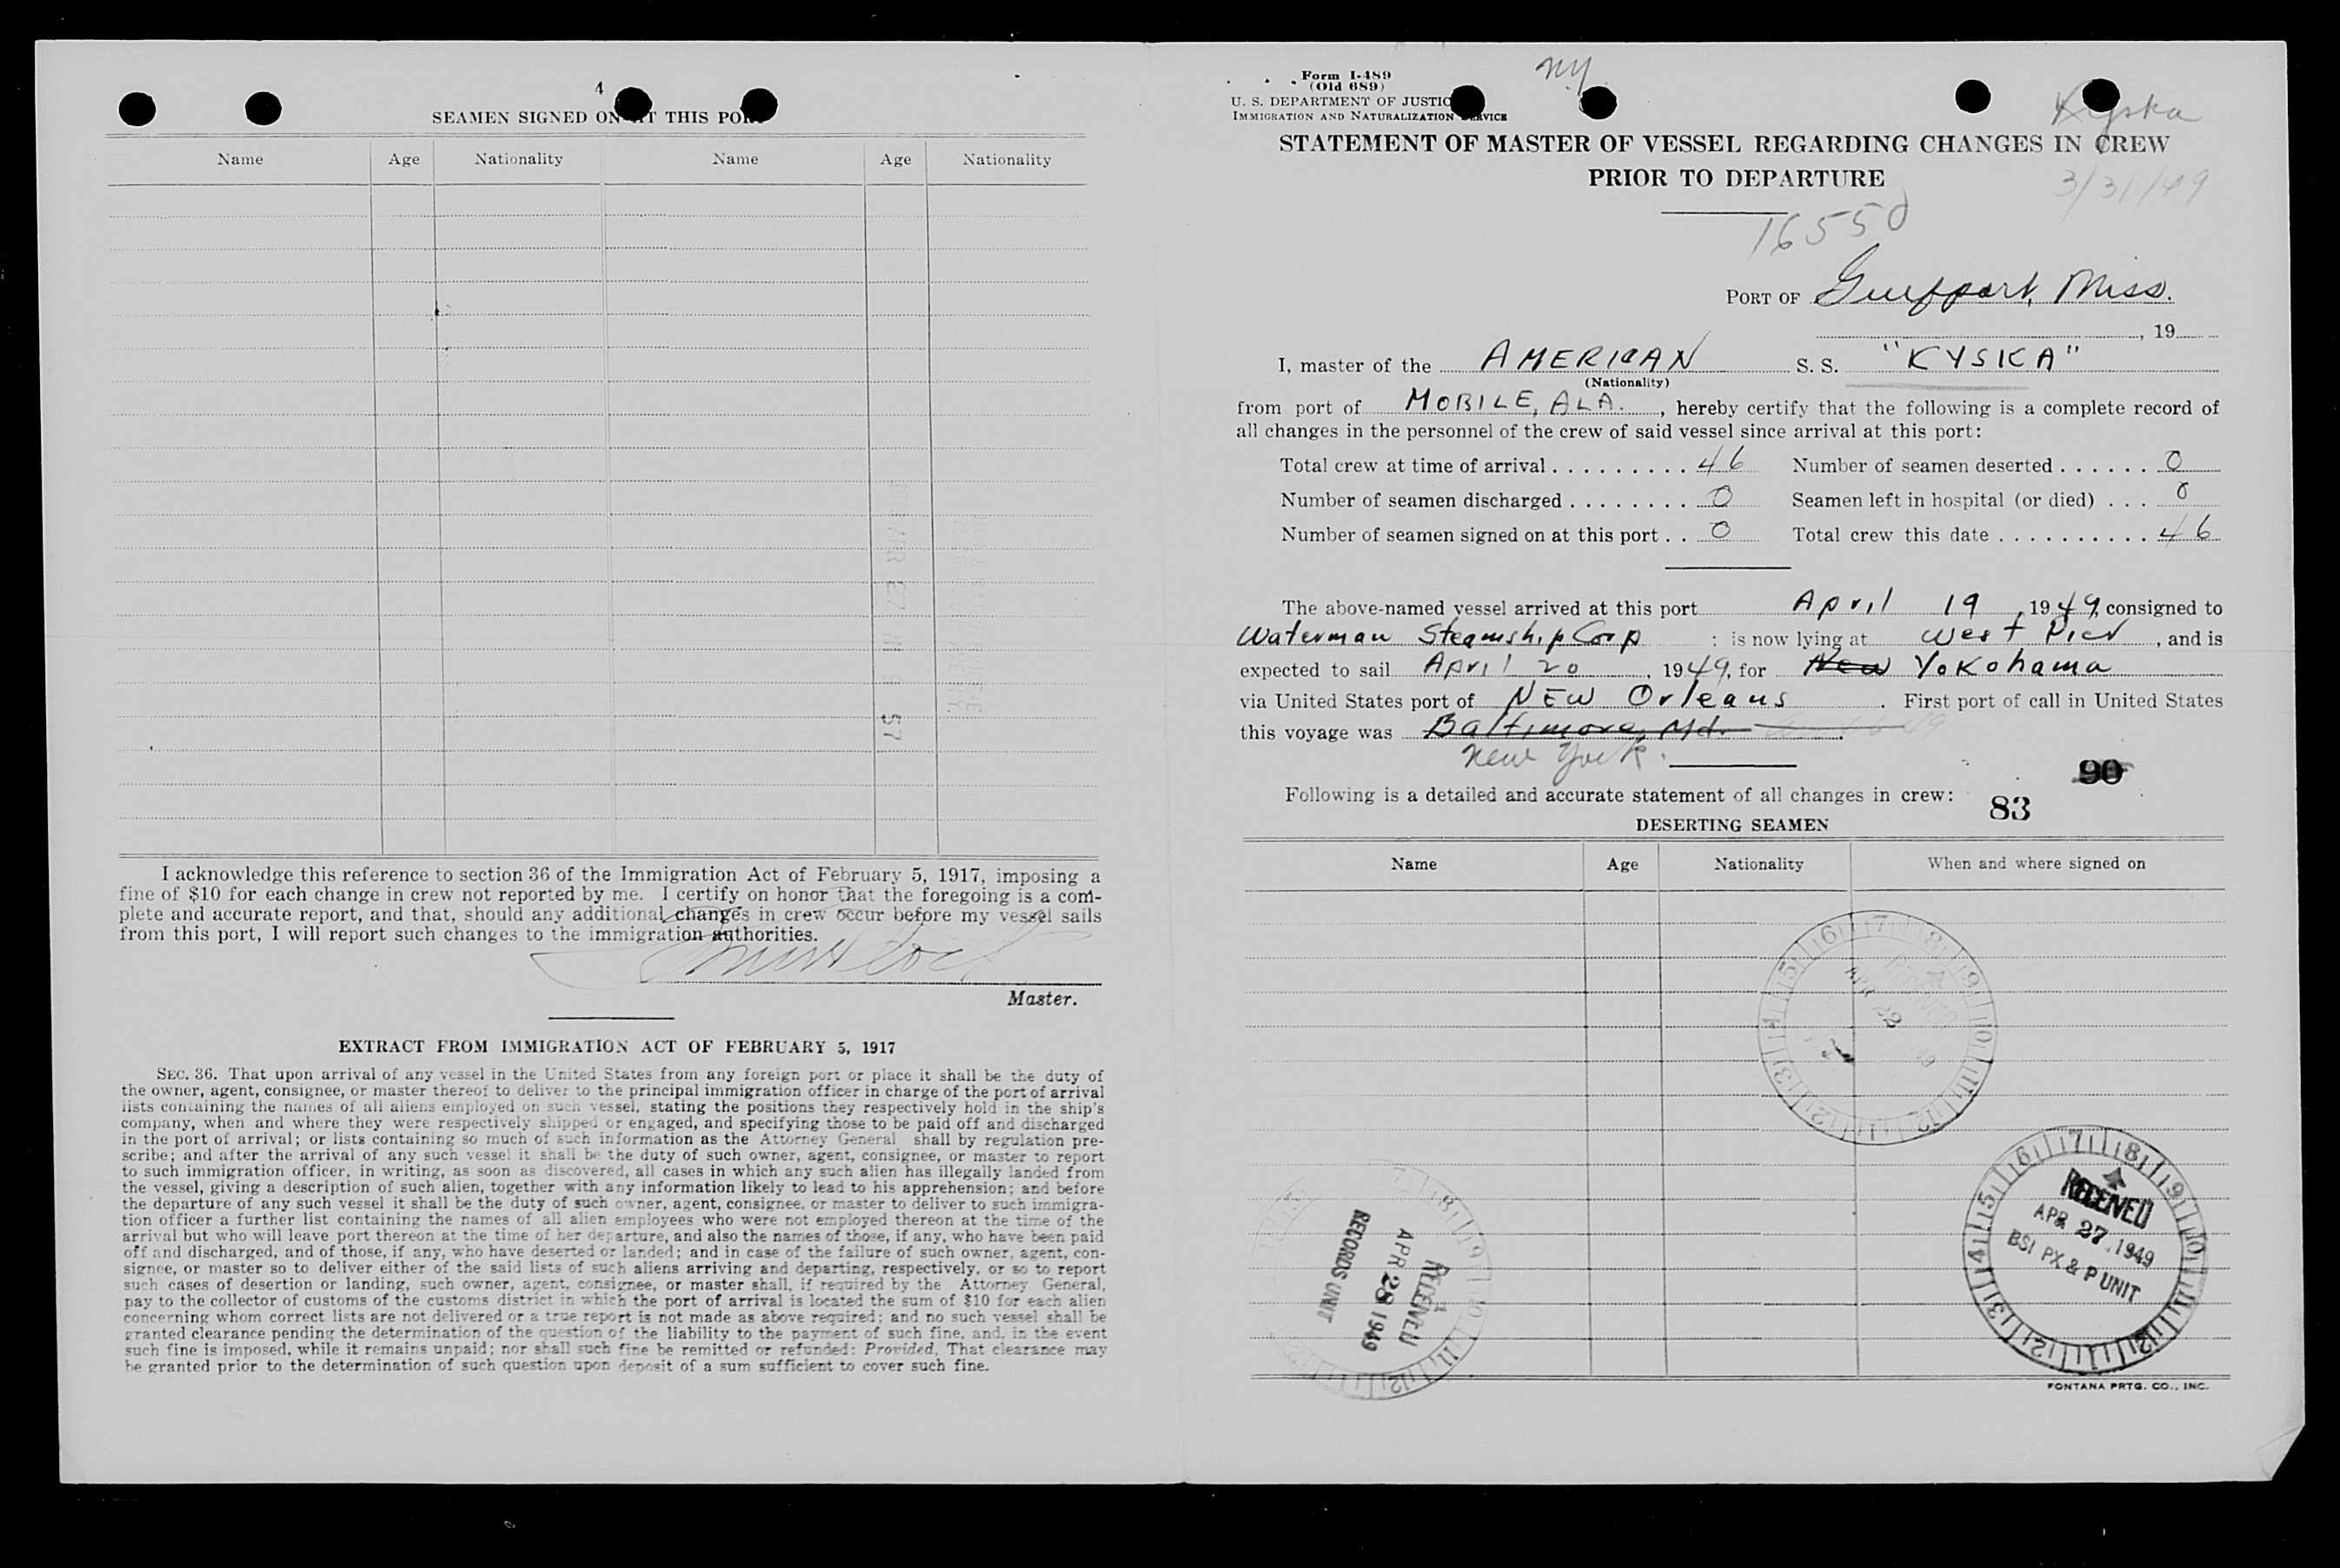 4
SEAMEN SIGNED ON AT THIS PORT
Name Age Nationality Name Age Nationality
57
I acknowledge this reference to section 36 of the Immigration Act of February 5, 1917, imposing a
fine of $10 for each change in crew not reported by me. I certify on honor that the foregoing is a com-
plete and accurate report, and that, should any additional changes in crew occur before my vessel sails
from this port, I will report such changes to the immigration authorities.
Master.
EXTRACT FROM IMMIGRATION ACT OF FEBRUARY 5, 1917
SEC. 36. That upon arrival of any vessel in the United States from any foreign port or place it shall be the duty of
the owner, agent, consignee, or master thereof to deliver to the principal immigration officer in charge of the port of arrival
lists containing the names of all aliens employed on such vessel, stating the positions they respectively hold in the ship's
company, when and where they were respectively shipped or engaged, and specifying those to be paid off and discharged
in the port of arrival; or lists containing so much of such information as the Attorney General shall by regulation pre-
scribe; and after the arrival of any such vessel it shall be the duty of such owner, agent, consignee, or master to report
to such immigration officer, in writing, as soon as discovered, all cases in which any such alien has illegally landed from
the vessel, giving a description of such alien, together with any information likely to lead to his apprehension; and before
the departure of any such vessel it shall be the duty of such owner, agent, consignee, or master to deliver to such immigra-
tion officer a further list containing the names of all alien employees who were not employed thereon at the time of the
arrival but who will leave port thereon at the time of her departure, and also the names of those, if any, who have been paid
off and discharged, and of those, if any, who have deserted or landed; and in case of the failure of such owner, agent, con-
signee, or master so to deliver either of the said lists of such aliens arriving and departing, respectively, or so to report
such cases of desertion or landing, such owner, agent, consignee, or master shall, if required by the Attorney General,
pay to the collector of customs of the customs district in which the port of arrival is located the sum of $10 for each alien
concerning whom correct lists are not delivered or a true report is not made as above required; and no such vessel shall be
granted clearance pending the determination of the question of the liability to the payment of such fine, and, in the event
such fine is imposed, while it remains unpaid; nor shall such fine be remitted or refunded: Provided, That clearance may
be granted prior to the determination of such question upon deposit of a sum sufficient to cover such fine.
Form I-489
(Old 689)
U. S. DEPARTMENT OF JUSTICE
IMMIGRATION AND NATURALIZATION SERVICE
NY
Kyska
STATEMENT OF MASTER OF VESSEL REGARDING CHANGES IN CREW
PRIOR TO DEPARTURE
3/31/49
16550
PORT OF Gulfport, Miss.
, 19
I, master of the AMERICAN S. S. "KYSKA"
(Nationality)
from port of MOBILE, ALA. , hereby certify that the following is a complete record of
all changes in the personnel of the crew of said vessel since arrival at this port:
Total crew at time of arrival . . . . . . . . . 46 Number of seamen deserted . . . . . . 0
Number of seamen discharged . . . . . . . . 0 Seamen left in hospital (or died) . . . 0
Number of seamen signed on at this port . . 0 Total crew this date . . . . . . . . . . 46
The above-named vessel arrived at this port April 19 , 1949, consigned to
Waterman Steamship Corp : is now lying at West Pier , and is
expected to sail April 20 , 1949, for New Yokohama
via United States port of NEW Orleans . First port of call in United States
this voyage was Baltimore, Md.
New York.
90
Following is a detailed and accurate statement of all changes in crew:
83
DESERTING SEAMEN
Name Age Nationality When and where signed on
APR 22
RECEIVED
APR 27, 1949
BSI PX & P UNIT
RECEIVED
APR 28 1949
RECORDS UNIT
FONTANA PRTG. CO., INC.